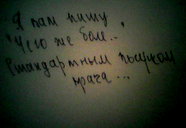 Я вам пишу
"Чего же боле.."
Стандартным почерком
врача...